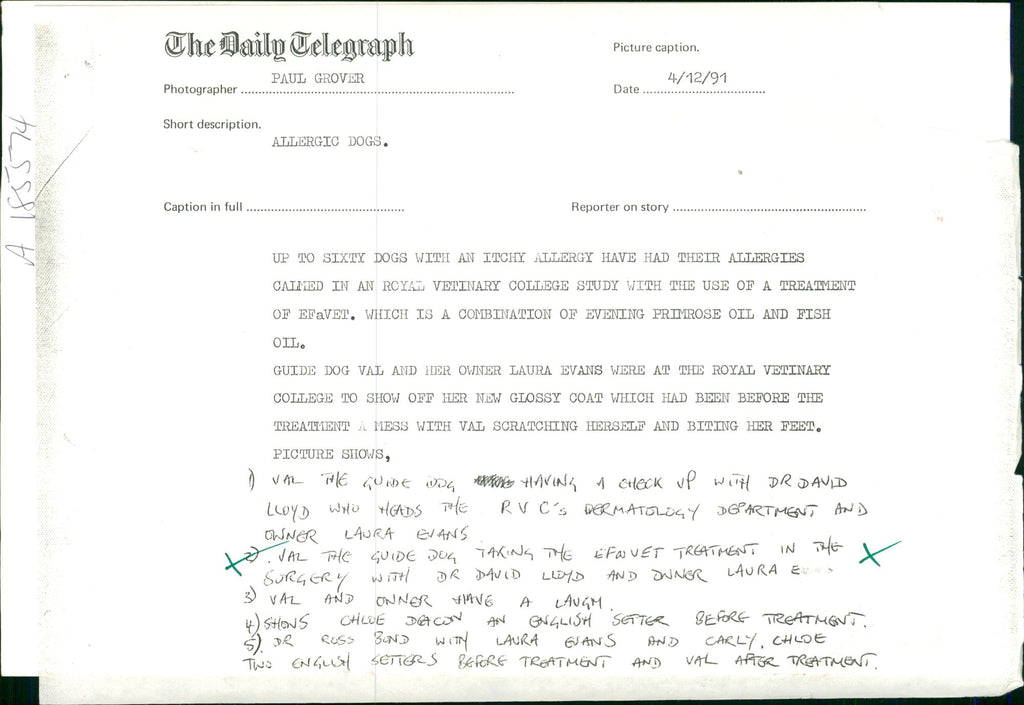 The Daily Telegraph
Picture caption.
PAUL GROVER
4/12/91
Photographer
Date
Short description.
ALLERGIC DOGS.
A 185574
Caption in full
Reporter on story
UP TO SIXTY DOGS WITH AN ITCHY ALLERGY HAVE HAD THEIR ALLERGIES
CALMED IN AN ROYAL VETINARY COLLEGE STUDY WITH THE USE OF A TREATMENT
OF EFaVET. WHICH IS A COMBINATION OF EVENING PRIMROSE OIL AND FISH
OIL.
GUIDE DOG VAL AND HER OWNER LAURA EVANS WERE AT THE ROYAL VETINARY
COLLEGE TO SHOW OFF HER NEW GLOSSY COAT WHICH HAD BEEN BEFORE THE
TREATMENT A MESS WITH VAL SCRATCHING HERSELF AND BITING HER FEET.
PICTURE SHOWS,
1) VAL THE GUIDE DOG HAVING A CHECK UP WITH DR DAVID
LLOYD WHO HEADS THE R V C's DERMATOLOGY DEPARTMENT AND
OWNER LAURA EVANS
2). VAL THE GUIDE DOG TAKING THE EFaVET TREATMENT IN THE
SURGERY WITH DR DAVID LLOYD AND OWNER LAURA E
3) VAL AND OWNER HAVE A LAUGH.
4) SHOWS CHLOE DEACON AN ENGLISH SETTER BEFORE TREATMENT.
5). DR ROSS BOND WITH LAURA EVANS AND CARLY, CHLOE
TWO ENGLISH SETTERS BEFORE TREATMENT AND VAL AFTER TREATMENT.